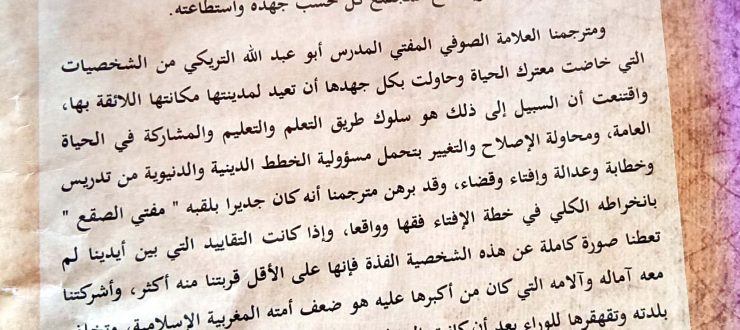 كل حسب جهده واستطاعته.
ومترجمنا العلامة الصوفي المفتي المدرس أبو عبد الله التريكي من الشخصيات
التي خاضت معترك الحياة وحاولت بكل جهدها أن تعيد لمدينتها مكانتها اللائقة بها،
واقتنعت أن السبيل إلى ذلك هو سلوك طريق التعلم والتعليم والمشاركة في الحياة
العامة، ومحاولة الإصلاح والتغيير بتحمل مسؤولية الخطط الدينية والدنيوية من تدريس
وخطابة وعدالة وإفتاء وقضاء، وقد برهن مترجمنا أنه كان جديرا بلقبه " مفتي الصقع "
بانخراطه الكلي في خطة الإفتاء فقها وواقعا، وإذا كانت التقاييد التي بين أيدينا لم
تعطنا صورة كاملة عن هذه الشخصية الفذة فإنها على الأقل قربتنا منه أكثر، وأشركتنا
معه آماله وآلامه التي كان من أكبرها عليه هو ضعف أمته المغربية الإسلامية،
بلدته وتقهقرها للوراء بعد أن كانت